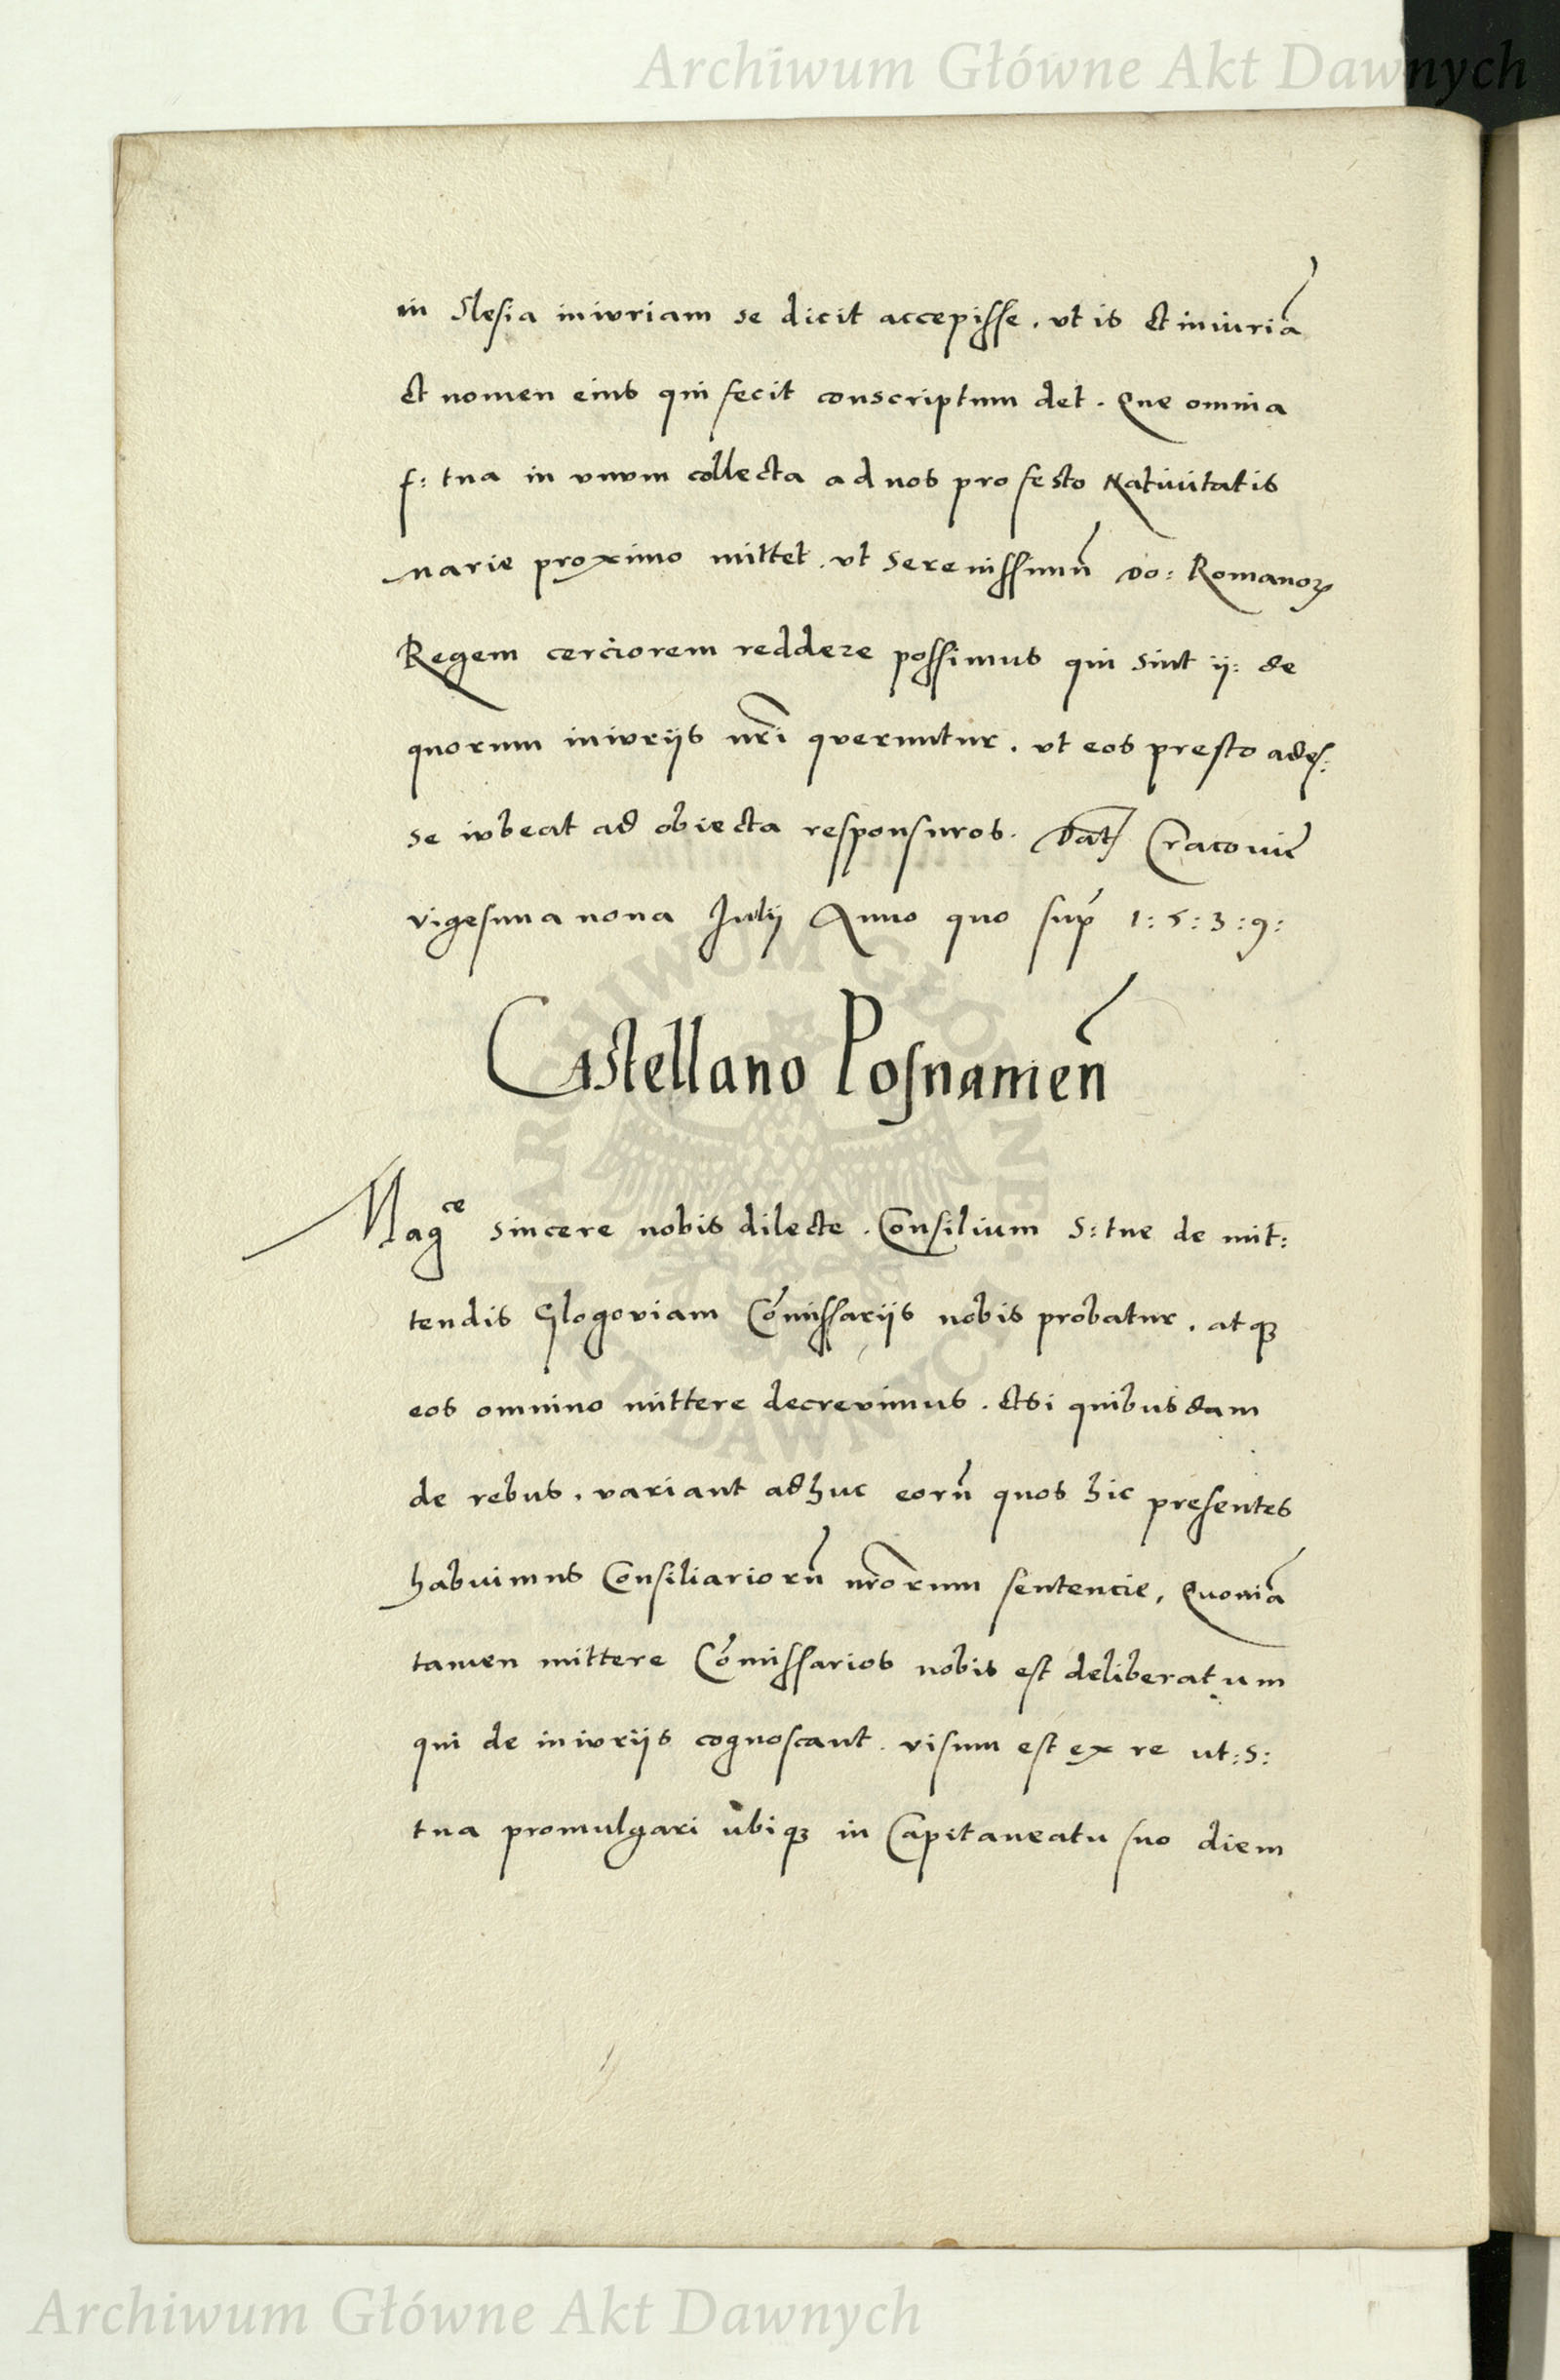 Archiwum Główne Akt Dawnych
in Slesia iniuriam se dicit accepisse. vt is et iniuriā
et nomen eius qui fecit conscriptum det. Que omnia
f: tua in vnum collecta ad nos pro festo Natiuitatis
Marie proximo mittet. vt Serenissimū Do: Romanoꝝ
Regem cerciorem reddere possimus qui sint ij: de
quorum iniurijs nr̄i queruntur. vt eos presto ades:
se iubeat ad obiecta responsuros. Dat Cracouiē
vigesima nona Julij Anno quo sup̄ 1:5:3:9:
Castellano Posnanien̄
Magce sincere nobis dilecte. Consilium S: tue de mit:
tendis Glogoviam Cōmissarijs nobis probatur. atqꝫ
eos omnino mittere decrevimus. Etsi quibusdam
de rebus. variant adhuc eorū quos hic presentes
habuimus Consiliariorū nr̄orum sentencie, Quoniā
tamen mittere Cōmissarios nobis est deliberatum
qui de iniurijs cognoscant. visum est ex re ut: S:
tua promulgari ubiqꝫ in Capitaneatu suo diem
ARCHIWUM GŁÓWNE AKT DAWNYCH
Archiwum Główne Akt Dawnych